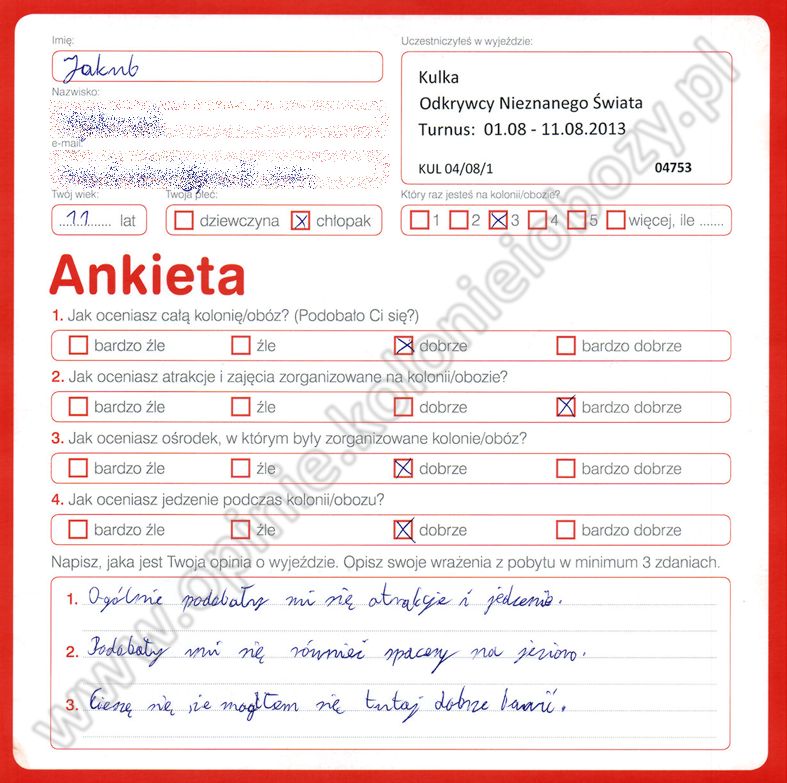 Imię:
Jakub
Uczestniczyłeś w wyjeździe:
Kulka
Odkrywcy Nieznanego Świata
Turnus: 01.08 - 11.08.2013
KUL 04/08/1 04753
Nazwisko:
e-mail:
Twój wiek:
11 lat
Twoja płeć:
dziewczyna chłopak
Który raz jesteś na kolonii/obozie?
1 2 3 4 5 więcej, ile .......
Ankieta
1. Jak oceniasz całą kolonię/obóz? (Podobało Ci się?)
bardzo źle źle dobrze bardzo dobrze
2. Jak oceniasz atrakcje i zajęcia zorganizowane na kolonii/obozie?
bardzo źle źle dobrze bardzo dobrze
3. Jak oceniasz ośrodek, w którym były zorganizowane kolonie/obóz?
bardzo źle źle dobrze bardzo dobrze
4. Jak oceniasz jedzenie podczas kolonii/obozu?
bardzo źle źle dobrze bardzo dobrze
Napisz, jaka jest Twoja opinia o wyjeździe. Opisz swoje wrażenia z pobytu w minimum 3 zdaniach.
1. Ogólnie podobały mi się atrakcje i jedzenie.
2. Podobały mi się również spacery na jezioro.
3. Cieszę się, że mogłem się tutaj dobrze bawić.
www.opinie.kolonieiobozy.pl